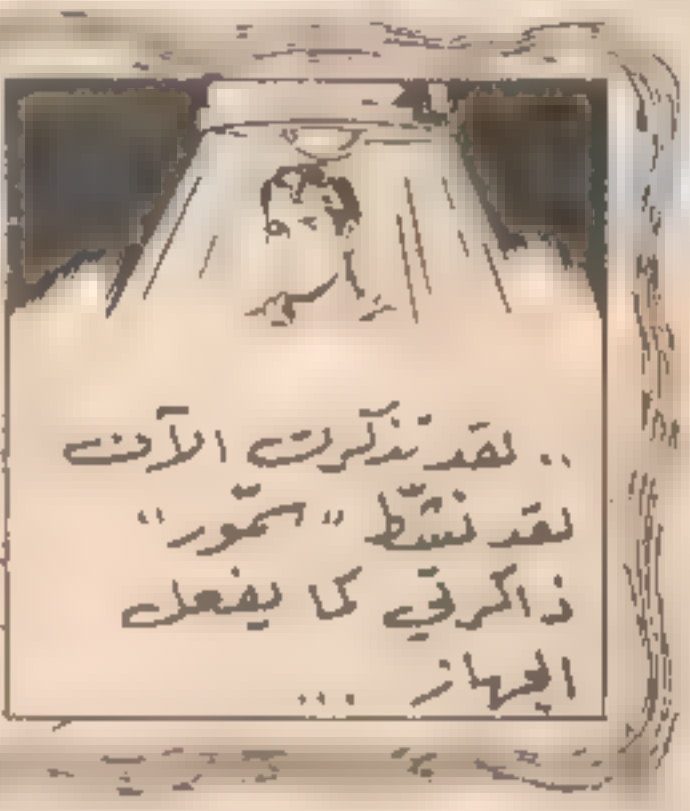 .. لقد تذكرت الآن
لقد نشّط "سمّور"
ذاكرتي كما يفعل
الجهاز ...